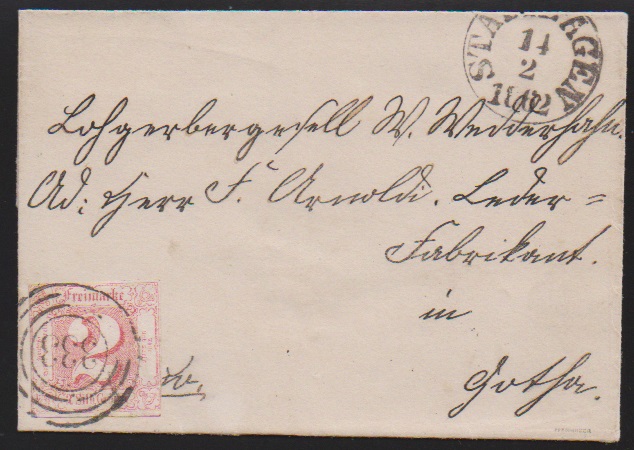 STADTHAGEN
14
2
1862
Lohgerbergesell W. Wedderhahn.
Ad: Herr F. Arnoldi. Leder=
Fabrikant.
in
Gotha.
Freimarke
2
333